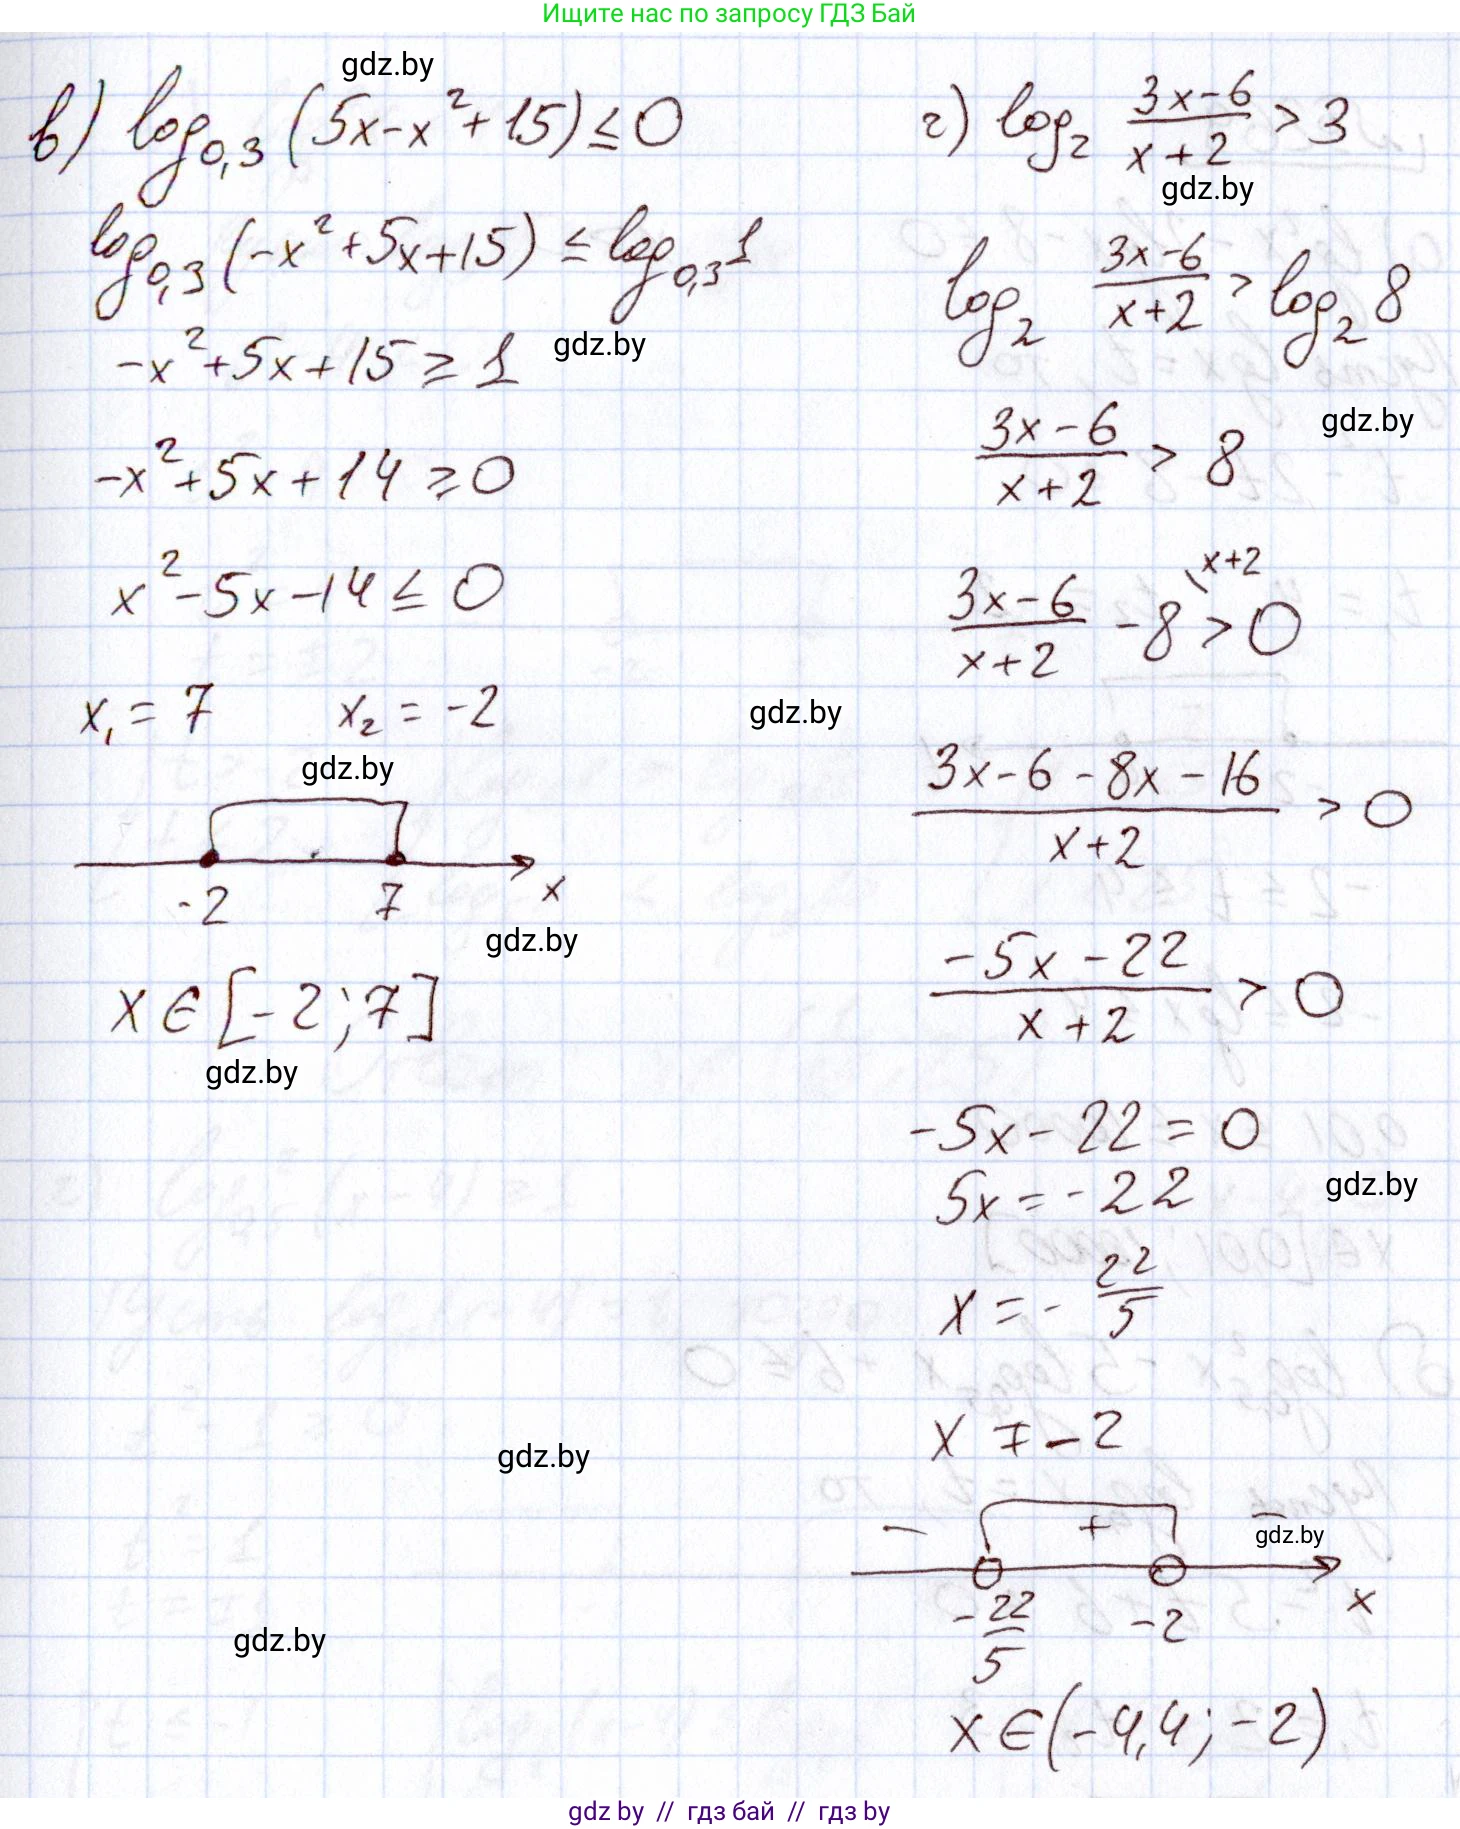 Ищите нас по запросу ГДЗ Бай
gdz.by
в) log₀,₃ (5x-x²+15) ≤ 0
log₀,₃ (-x²+5x+15) ≤ log₀,₃ 1
-x²+5x+15 ≥ 1
gdz.by
-x²+5x+14 ≥ 0
x²-5x-14 ≤ 0
x₁ = 7 x₂ = -2
gdz.by
gdz.by
-2 7 x
gdz.by
x ∈ [-2; 7]
gdz.by
gdz.by
gdz.by
г) log₂ (3x-6)/(x+2) > 3
gdz.by
log₂ (3x-6)/(x+2) > log₂ 8
(3x-6)/(x+2) > 8
gdz.by
(3x-6)/(x+2) - 8 \x+2 > 0
(3x-6-8x-16)/(x+2) > 0
(-5x-22)/(x+2) > 0
-5x-22 = 0
5x = -22
gdz.by
x = -22/5
x ≠ -2
- + -
gdz.by
-22/5 -2 x
x ∈ (-4,4; -2)
gdz by // гдз бай // гдз by